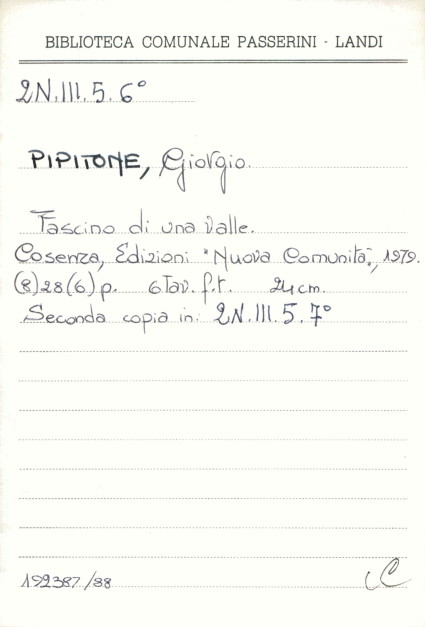 BIBLIOTECA COMUNALE PASSERINI - LANDI
2N.III.5.6°
PIPITONE, Giorgio.
Fascino di una Valle.
Cosenza, Edizioni "Nuova Comunità", 1979.
(8)28(6)p. 6Tav. f.t. 24cm.
Seconda copia in: 2N.III.5.7°
192387/88
C